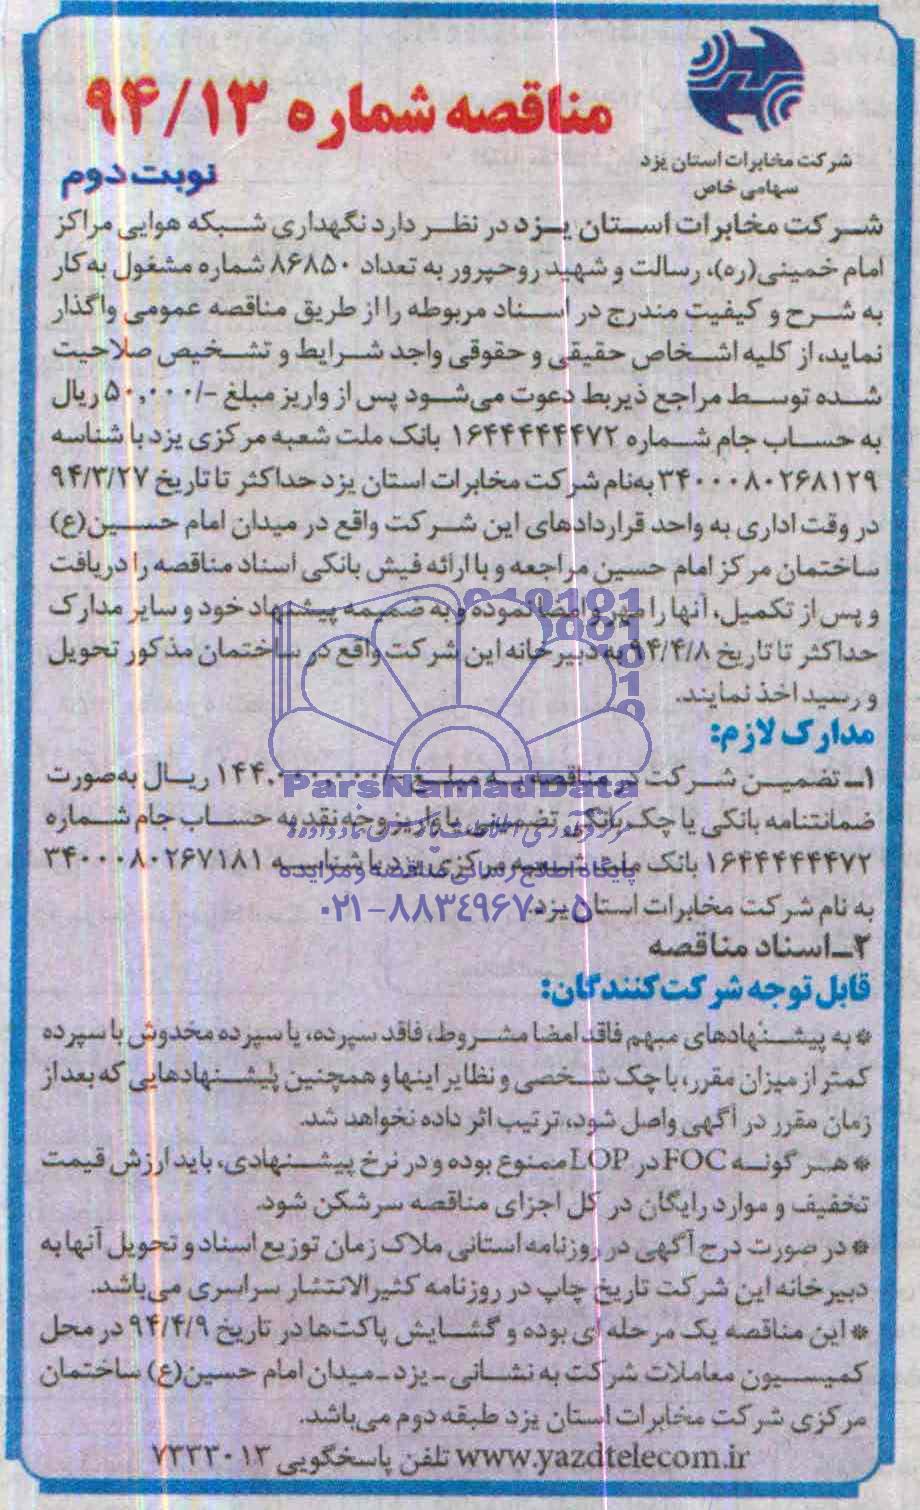 مناقصه شماره ۹۴/۱۳
شرکت مخابرات استان یزد
سهامی خاص
نوبت دوم
شرکت مخابرات استان یزد در نظر دارد نگهداری شبکه هوایی مراکز
امام خمینی(ره)، رسالت و شهید روحپرور به تعداد ۸۶۸۵۰ شماره مشغول به کار
به شرح و کیفیت مندرج در اسناد مربوطه را از طریق مناقصه عمومی واگذار
نماید، از کلیه اشخاص حقیقی و حقوقی واجد شرایط و تشخیص صلاحیت
شده توسط مراجع ذیربط دعوت می‌شود پس از واریز مبلغ -/۵۰,۰۰۰ ریال
به حساب جام شماره ۱۶۴۴۴۴۴۴۷۲ بانک ملت شعبه مرکزی یزد با شناسه
۳۴۰۰۰۸۰۲۶۸۱۲۹ به‌نام شرکت مخابرات استان یزد حداکثر تا تاریخ ۹۴/۳/۲۷
در وقت اداری به واحد قراردادهای این شرکت واقع در میدان امام حسین(ع)
ساختمان مرکز امام حسین مراجعه و با ارائه فیش بانکی اسناد مناقصه را دریافت
و پس از تکمیل، آنها را مهر و امضا نموده و به ضمیمه پیشنهاد خود و سایر مدارک
حداکثر تا تاریخ ۹۴/۴/۸ به دبیرخانه این شرکت واقع در ساختمان مذکور تحویل
و رسید اخذ نمایند.
مدارک لازم:
۱ـ تضمین شرکت در مناقصه به مبلغ -/۱۴۴.۰۰۰.۰۰۰ ریال به‌صورت
ParsNamadData
ضمانتنامه بانکی یا چک بانکی تضمینی یا واریز وجه نقد به حساب جام شماره
مرکز فرآوری اطلاعات پارس نماد داده‌ها
۱۶۴۴۴۴۴۴۷۲ بانک ملت شعبه مرکزی یزد با شناسه ۳۴۰۰۰۸۰۲۶۷۱۸۱
پایگاه اطلاع رسانی مناقصه و مزایده
به نام شرکت مخابرات استان یزد.
۰۲۱-۸۸۳۴۹۶۷۰-۵
۲ـ اسناد مناقصه
قابل توجه شرکت‌کنندگان:
* به پیشنهادهای مبهم فاقد امضا مشروط، فاقد سپرده، یا سپرده مخدوش با سپرده
کمتر از میزان مقرر، با چک شخصی و نظایر اینها و همچنین پیشنهادهایی که بعد از
زمان مقرر در آگهی واصل شود، ترتیب اثر داده نخواهد شد.
* هر گونه FOC در LOP ممنوع بوده و در نرخ پیشنهادی، باید ارزش قیمت
تخفیف و موارد رایگان در کل اجزای مناقصه سرشکن شود.
* در صورت درج آگهی در روزنامه استانی ملاک زمان توزیع اسناد و تحویل آنها به
دبیرخانه این شرکت تاریخ چاپ در روزنامه کثیرالانتشار سراسری می‌باشد.
* این مناقصه یک مرحله ای بوده و گشایش پاکت‌ها در تاریخ ۹۴/۴/۹ در محل
کمیسیون معاملات شرکت به نشانی ـ یزد ـ میدان امام حسین(ع) ساختمان
مرکزی شرکت مخابرات استان یزد طبقه دوم می‌باشد.
www.yazdtelecom.ir تلفن پاسخگویی ۷۲۳۳۰۱۳